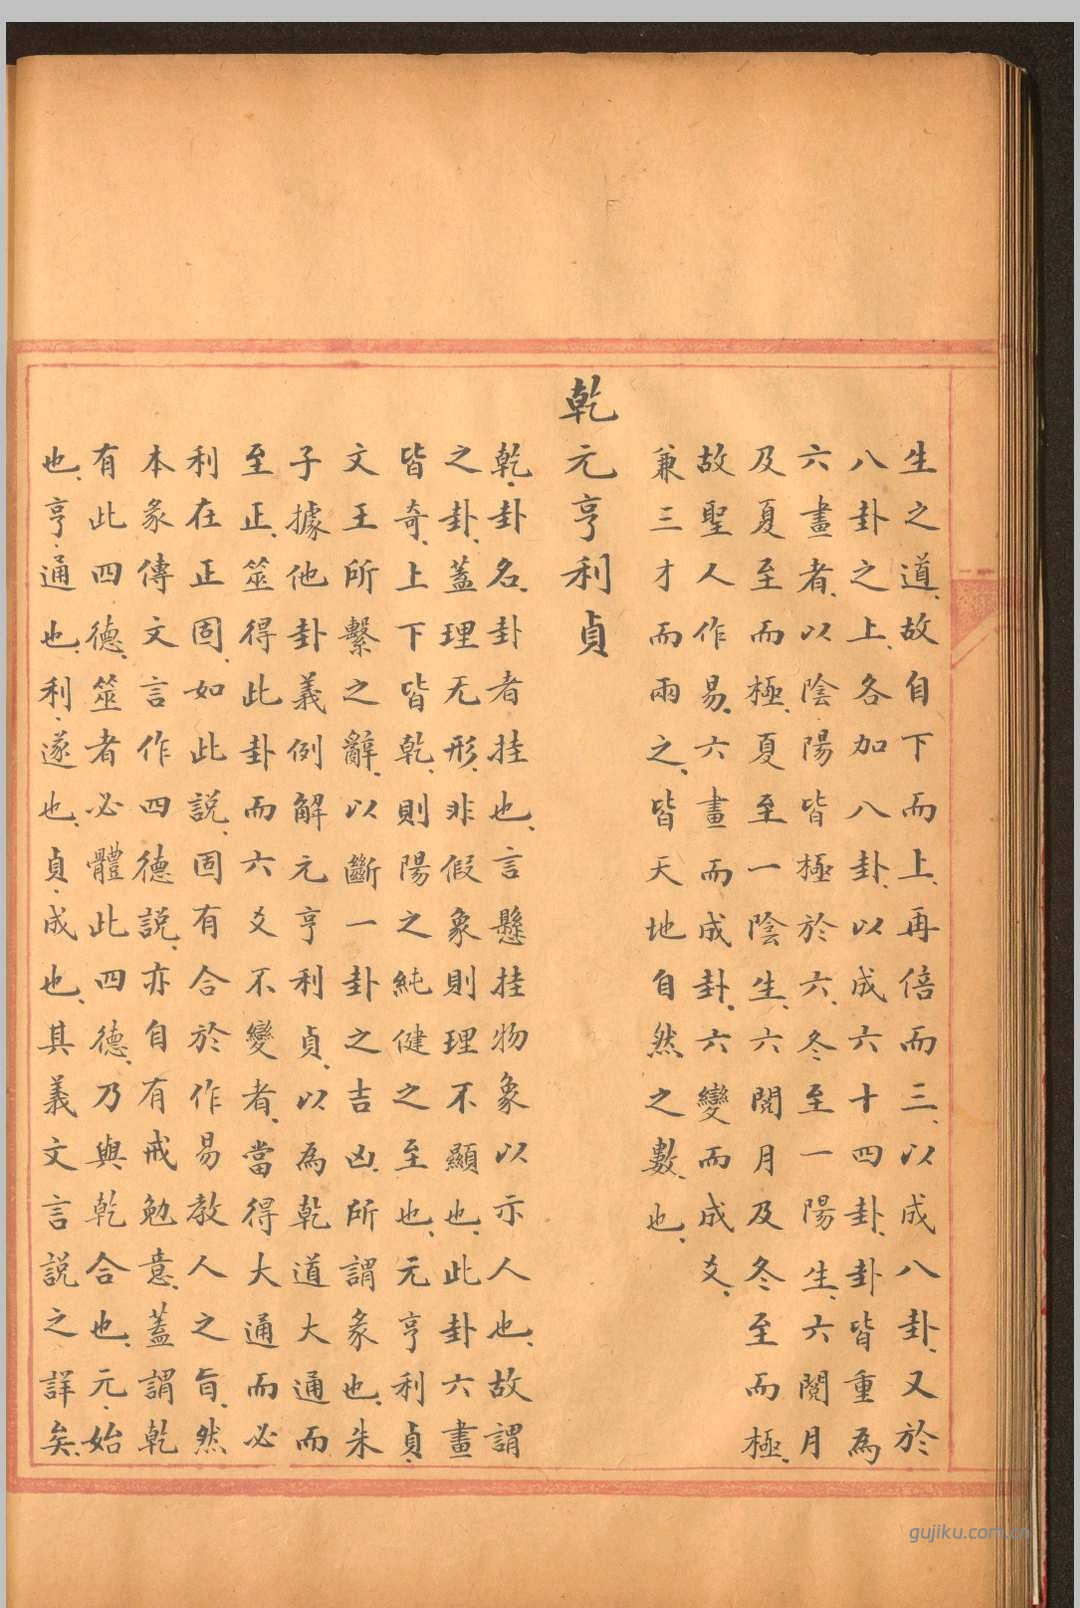 生之道、故自下而上、再倍而三、以成八卦、又於
八卦之上、各加八卦、以成六十四卦、卦皆重為
六畫者、以陰陽皆極於六、冬至一陽生、六閱月
及夏至而極、夏至一陰生、六閱月及冬至而極、
故聖人作易、六畫而成卦、六變而成爻、
兼三才而兩之、皆天地自然之數也、
乾元亨利貞
乾、卦名、卦者挂也、言懸挂物象以示人也、故謂
之卦、蓋理无形、非假象則理不顯也、此卦六畫
皆奇、上下皆乾、則陽之純健之至也、元亨利貞、
文王所繫之辭、以斷一卦之吉凶、所謂彖也、朱
子據他卦義例解元亨利貞、以為乾道大通而
至正、筮得此卦而六爻不變者、當得大通而必
利在正固、如此說、固有合於作易教人之旨、然
本彖傳文言作四德說、亦自有戒勉意、蓋謂乾
有此四德、筮者必體此四德、乃與乾合也、元、始
也、亨、通也、利、遂也、貞、成也、其義文言說之詳矣、
gujiku.com.cn